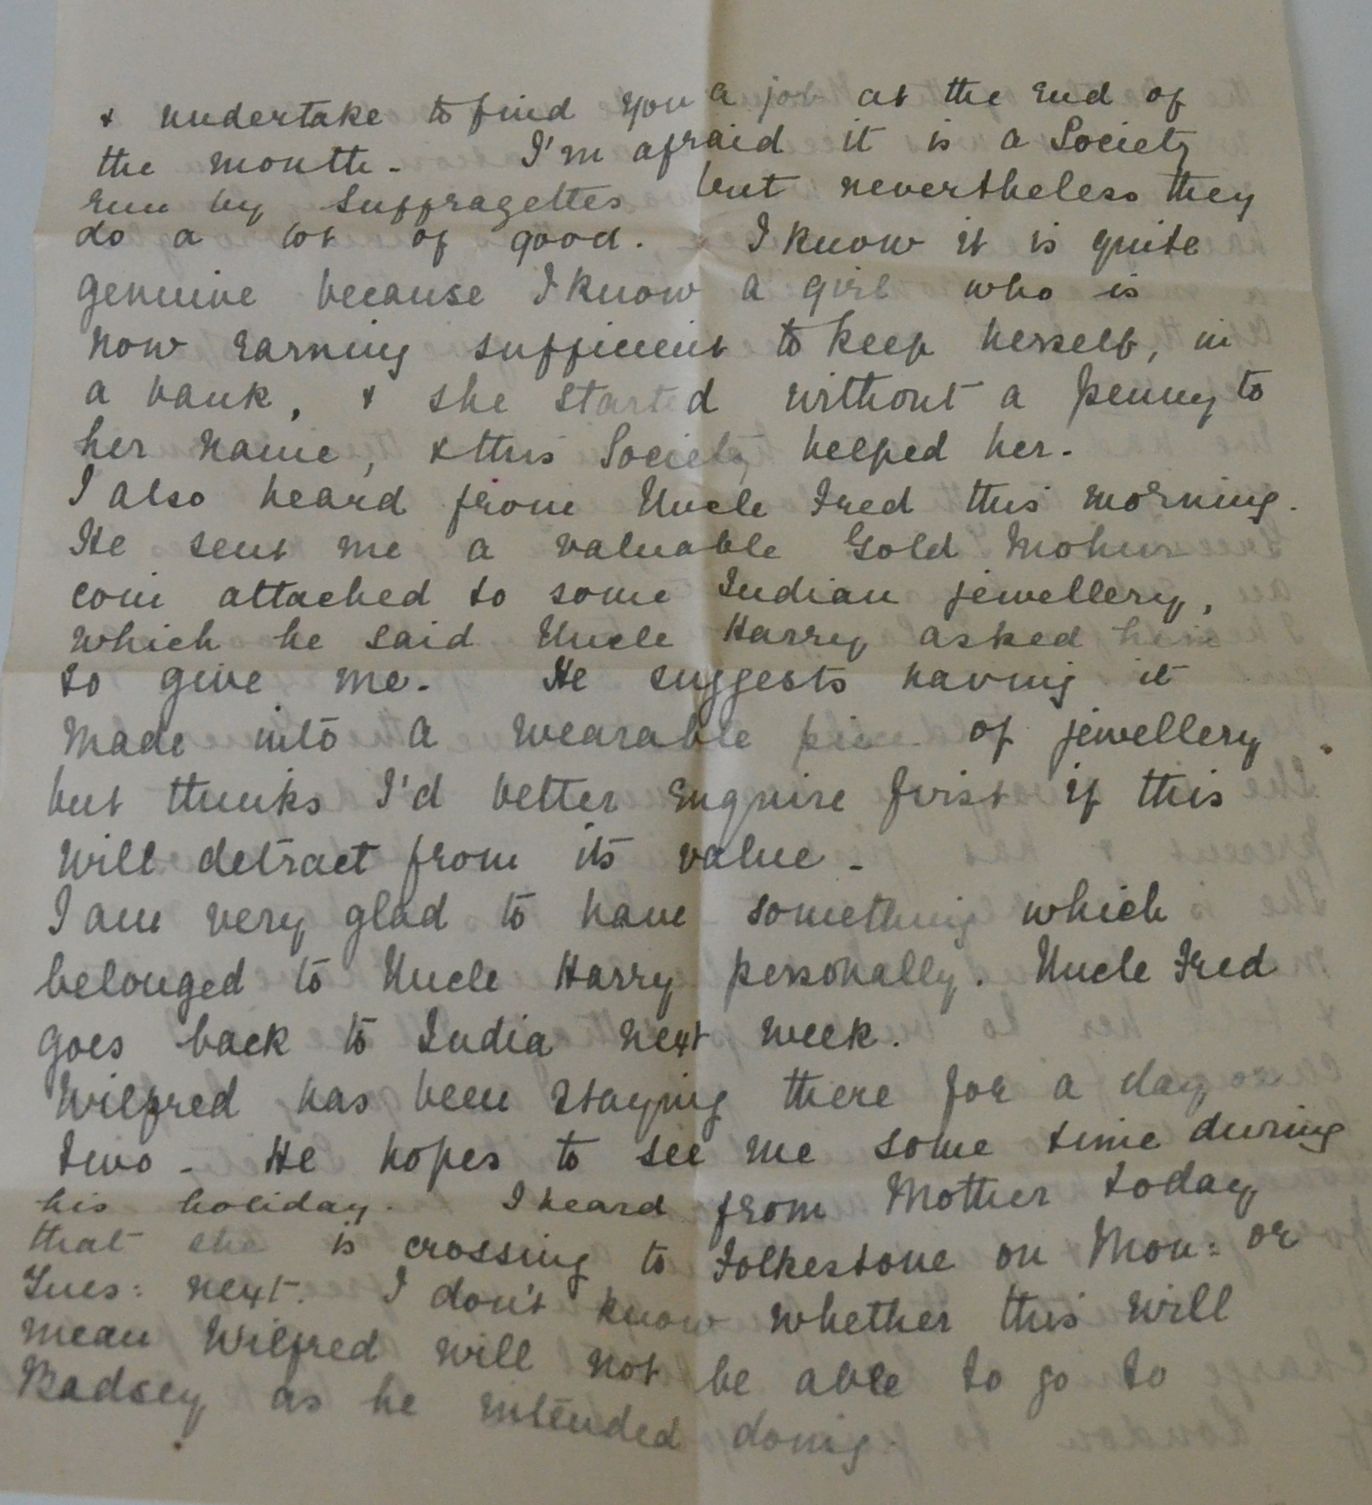 & undertake to find you a job at the end of
the month. I'm afraid it is a Society
run by Suffragettes but nevertheless they
do a lot of good. I know it is quite
genuine because I know a girl who is
now earning sufficient to keep herself, in
a bank, & she started without a penny to
her name, & this Society helped her.
I also heard from Uncle Fred this morning.
He sent me a valuable Gold Mohur
coin attached to some Indian jewellery,
which he said Uncle Harry asked him
to give me. He suggests having it
made into a wearable piece of jewellery
but thinks I'd better enquire first if this
will detract from its value.
I am very glad to have something which
belonged to Uncle Harry personally. Uncle Fred
goes back to India next week.
Wilfred has been staying there for a day or
two. He hopes to see me some time during
his holiday. I heard from Mother today
that she is crossing to Folkestone on Mon: or
Tues: next. I don't know whether this will
mean Wilfred will not be able to go to
Badsey as he intended doing.